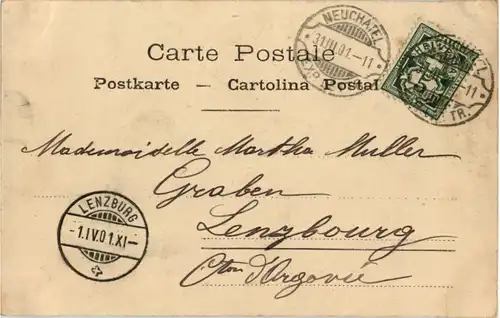 NEUCHATEL
31.III.01.-11
EXP.
Carte Postale
Postkarte — Cartolina Postal
-11
TR.
Mademoiselle Martha Muller
Graben
Lenzbourg
Cton d'Argovie
LENZBURG
-1.IV.01.XI-